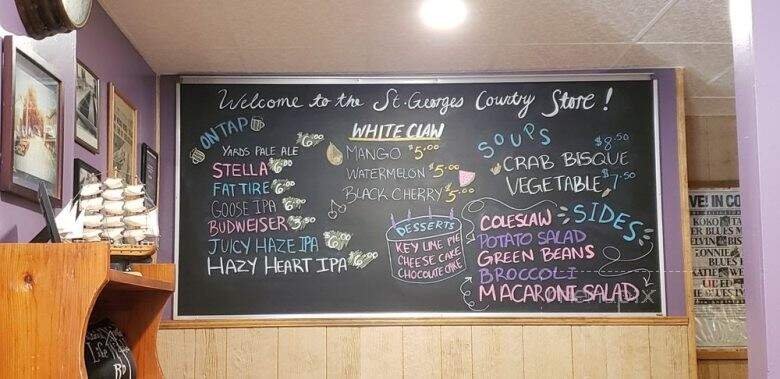 Welcome to the St. Georges Country Store!
ON TAP
YARDS PALE ALE $6.00
STELLA $6.00
FAT TIRE $6.00
GOOSE IPA $6.00
BUDWEISER
JUICY HAZE IPA $6.00
HAZY HEART IPA $6.00
WHITE CLAW
MANGO $5.00
WATERMELON $5.00
BLACK CHERRY $5.00
DESSERTS
KEY LIME PIE
CHEESE CAKE
CHOCOLATE CAKE
SOUPS
CRAB BISQUE $8.50
VEGETABLE $7.50
SIDES
COLESLAW
POTATO SALAD
GREEN BEANS
BROCCOLI
MACARONI SALAD
VE! IN CO
KOKO
BLUES
ELVIN BIS
ONNIE
BLUES
KATIE WE
menupix